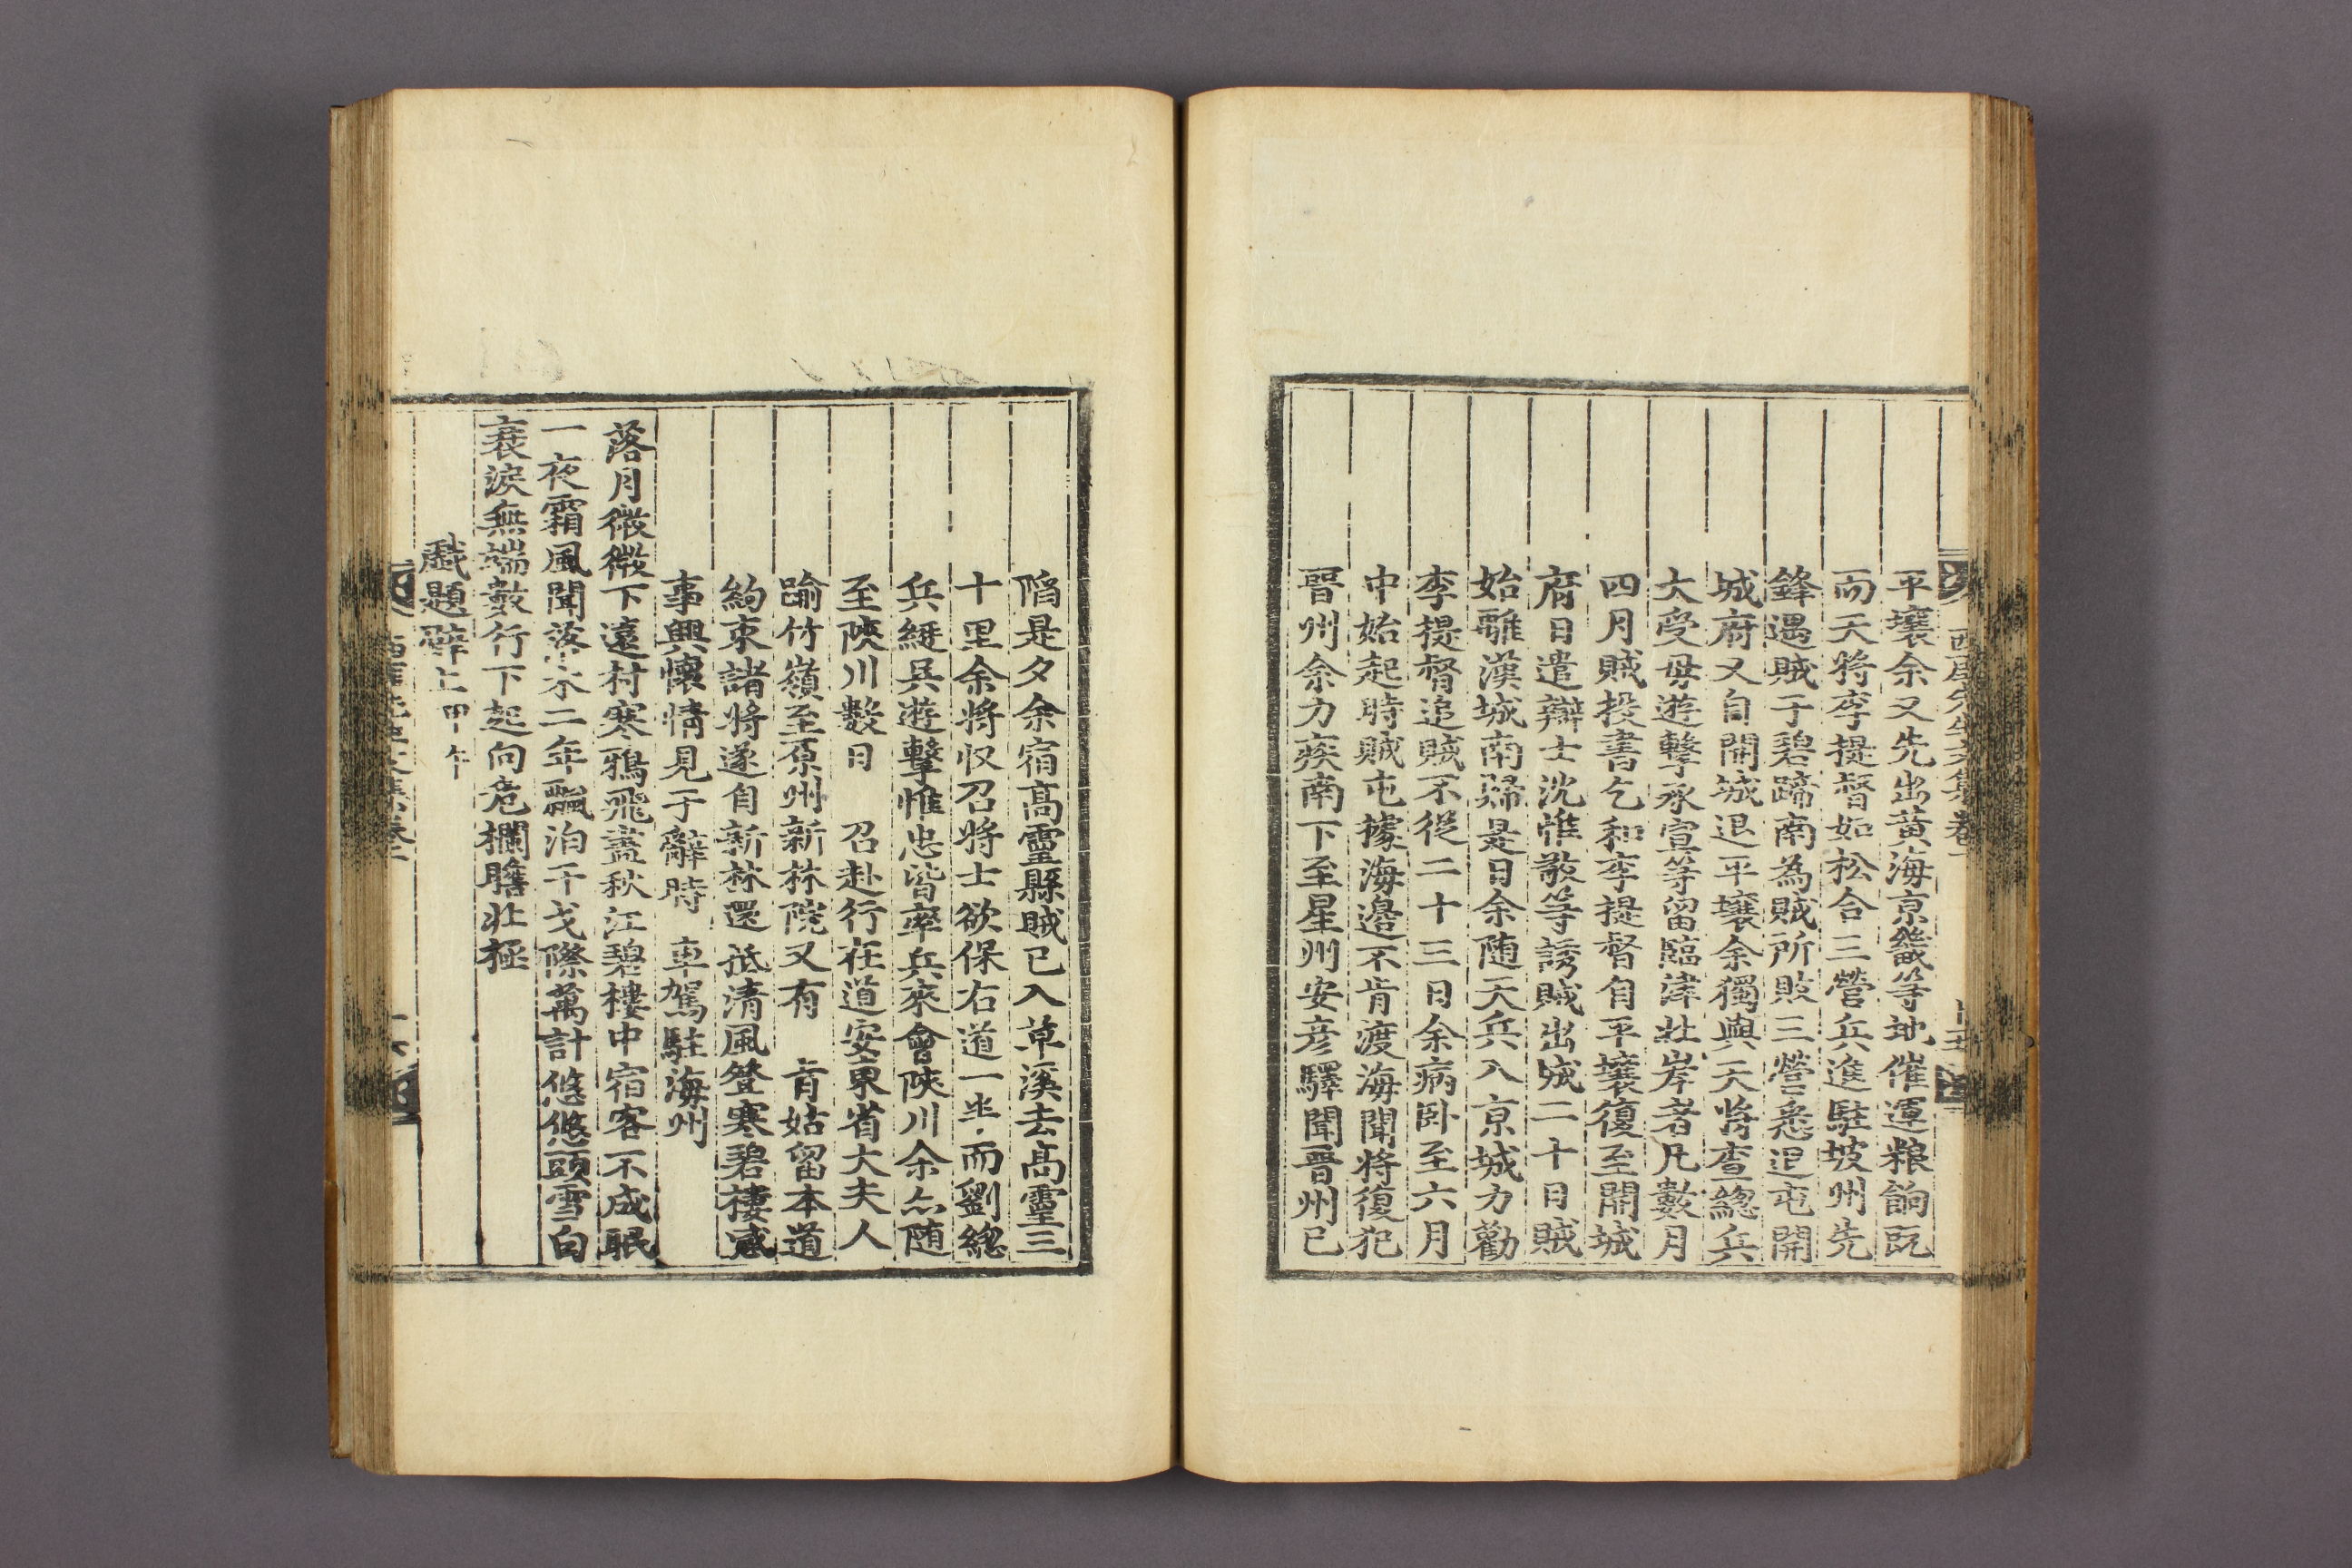 平壤余又先出黃海京畿等地催運粮餉旣
而天將李提督如松合三營兵進駐坡州先
鋒遇賊于碧蹄南為賊所敗三營悉退屯開
城府又自開城退平壤余獨與天將查總兵
大受毋遊擊承宣等留臨津北岸者凡數月
四月賊投書乞和李提督自平壤復至開城
府日遣辯士沈惟敬等誘賊出城二十日賊
始離漢城南歸是日余随天兵入京城力勸
李提督追賊不從二十三日余病臥至六月
中始起時賊屯據海邊不肯渡海聞將復犯
晋州余力疾南下至星州安彦驛聞晋州已
陷是夕余宿高靈縣賊已入草溪去高靈三
十里余將收召將士欲保右道一半而劉總
兵綎吳遊擊惟忠皆率兵來會陜川余亦随
至陜川數日 召赴行在道安東省大夫人
踰竹嶺至原州新林院又有 旨姑留本道
約束諸將遂自新林還抵清風登寒碧樓感
事興懷情見于辭時 車駕駐海州
落月微微下遠村寒鴉飛盡秋江碧樓中宿客不成眠
一夜霜風聞落木二年飄泊干戈際萬計悠悠頭雪白
衰淚無端數行下起向危欄瞻北極
戲題壁上甲午